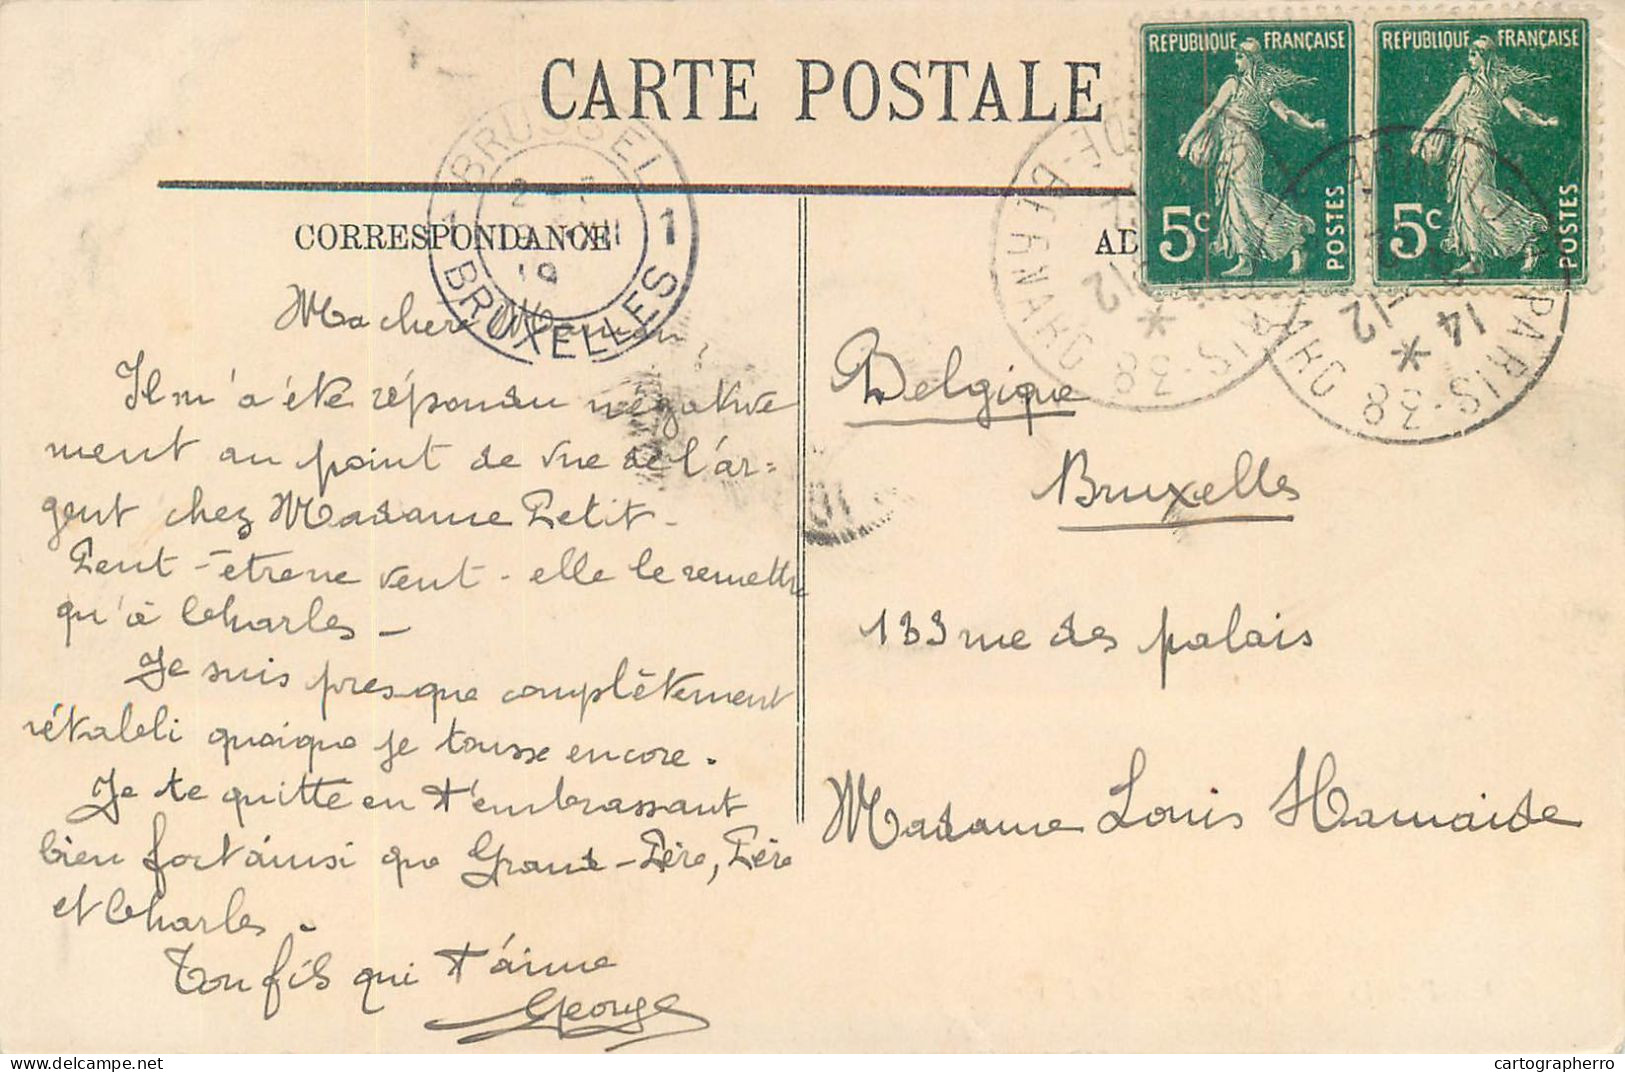 CARTE POSTALE
REPUBLIQUE FRANÇAISE
5c POSTES
REPUBLIQUE FRANÇAISE
5c POSTES
BRUSSEL
1 1
BRUXELLES
CORRESPONDANCE
PARIS-38
14
Ma chere Maman,
Il m'a été répondu négative
ment au point de vue de l'ar=
gent chez Madame Petit-
Peut-être ne veut-elle le remettre
qu'à Charles-
Je suis presque complètement
rétabli quoique je tousse encore.
Je te quitte en t'embrassant
bien fort ainsi que Grand-Père, Père
et Charles.
Ton fils qui t'aime
George
Belgique
Bruxelles
133 rue des palais
Madame Louis Hamaide
cartographerro